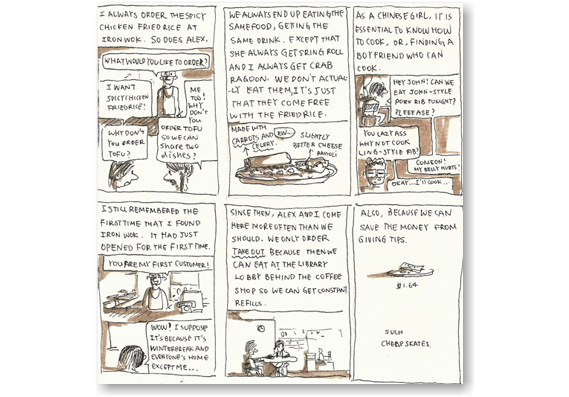 I ALWAYS ORDER THE SPICY
CHICKEN FRIED RICE AT
IRON WOK. SO DOES ALEX.
WHAT WOULD YOU LIKE TO ORDER?
I WANT
SPICY CHICKEN
FRIED RICE!
ME
TOO!
WHY
DON'T
YOU
ORDER TOFU
SO WE CAN
SHARE TWO
DISHES?
WHY DON'T
YOU ORDER
TOFU?
WE ALWAYS END UP EATING THE
SAME FOOD, GETTING THE
SAME DRINK. EXCEPT THAT
SHE ALWAYS GET SRING ROLL
AND I ALWAYS GET CRAB
RAGOON. WE DON'T ACTUAL-
LY EAT THEM, IT'S JUST
THAT THEY COME FREE
WITH THE FRIED RICE.
MADE WITH
CARROTS AND
CELERY.
EW..
SLIGHTLY
BETTER CHEESE
RAVIOLI
AS A CHINESE GIRL, IT IS
ESSENTIAL TO KNOW HOW
TO COOK, OR, FINDING A
BOYFRIEND WHO CAN
COOK.
HEY JOHN! CAN WE
EAT JOHN-STYLE
PORK RIB TONIGHT?
PLEEEASE?
YOU LAZY ASS
WHY NOT COOK
LING-STYLE RIB!
COMEON!
MY BELLY HURTS!
OKAY...I'LL COOK..
I STILL REMEMBERED THE
FIRST TIME THAT I FOUND
IRON WOK. IT HAD JUST
OPENED FOR THE FIRST TIME.
YOU ARE MY FIRST CUSTOMER!
WOW! I SUPPOSE
IT'S BECAUSE IT'S
WINTERBREAK AND
EVERYONE'S HOME
EXCEPT ME...
SINCE THEN, ALEX AND I COME
HERE MORE OFTEN THAN WE
SHOULD. WE ONLY ORDER
TAKE OUT BECAUSE THEN WE
CAN EAT AT THE LIBRARY
LOBBY BEHIND THE COFFEE
SHOP SO WE CAN GET CONSTANT
REFILLS.
ALSO, BECAUSE WE CAN
SAVE THE MONEY FROM
GIVING TIPS.
$1.64
SUCH
CHEAPSKATES.